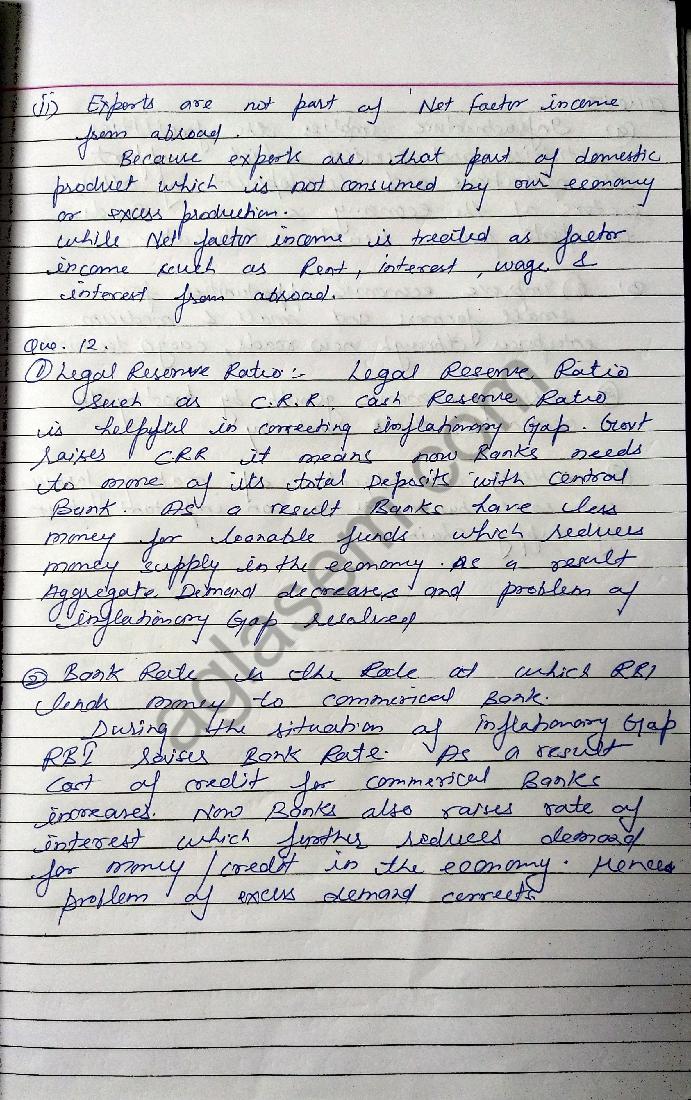 (ii) Exports are not part of 'Net factor income
from abroad.
Because exports are that part of domestic
product which is not consumed by our economy
or excess production.
While Net factor income is treated as factor
income such as Rent, interest, wage &
interest from abroad.
Que. 12.
① Legal Reserve Ratio :- Legal Reserve Ratio
such as C.R.R. Cash Reserve Ratio
is helpful in correcting inflationary Gap. Govt
raises CRR it means now Banks needs
to more of its total Deposits with central
Bank. As a result Banks have less
money for loanable funds which reduces
money supply in the economy. As a result
Aggregate Demand decreases and problem of
inflationary Gap resolved
② Bank Rate is the Rate at which RBI
lends money to commerical Bank.
During the situation of inflationary Gap
RBI raises Bank Rate. As a result
Cost of credit for commerical Banks
increases. Now Banks also raises rate of
interest which further reduces demand
for money / credit in the economy. Hence
problem of excess demand corrects
aglasem.com